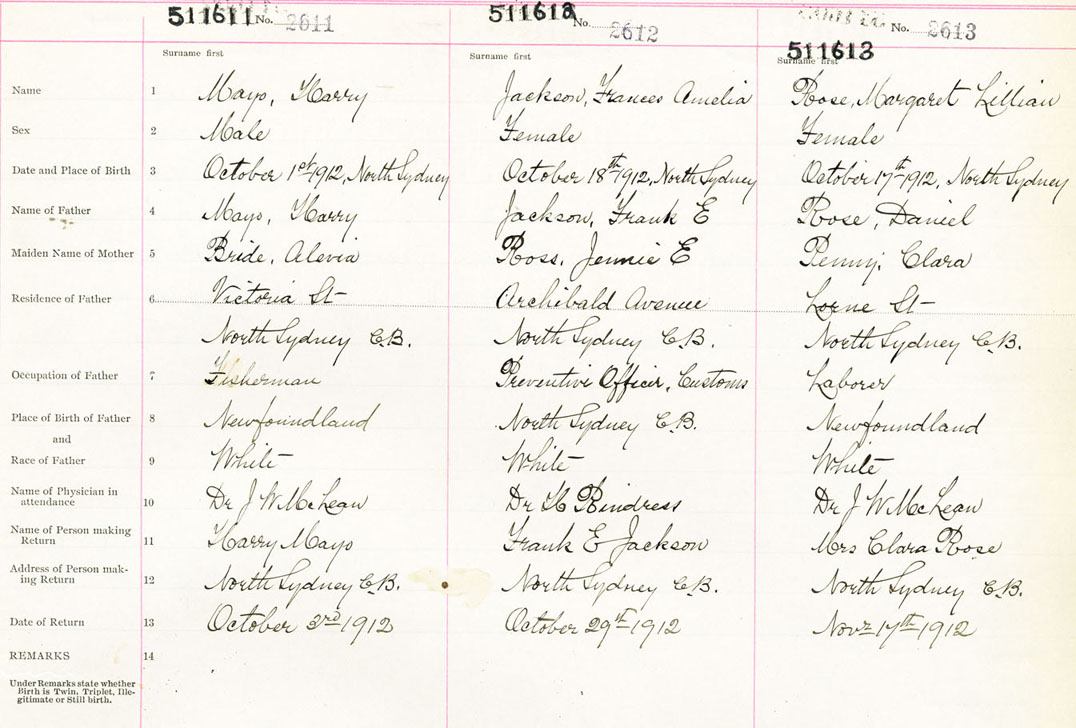 511611 No. 2611 511612 No. 2612 No. 2613
511613
Surname first Surname first Surname first
Name 1 Mayo, Harry Jackson, Frances Amelia Rose, Margaret Lillian
Sex 2 Male Female Female
Date and Place of Birth 3 October 1st 1912, North Sydney October 18th 1912, North Sydney October 17th 1912, North Sydney
Name of Father 4 Mayo, Harry Jackson, Frank E Rose, Daniel
Maiden Name of Mother 5 Bride, Alevia Ross, Jennie E Penny, Clara
Residence of Father 6 Victoria St Archibald Avenue Lorne St
North Sydney C.B. North Sydney C.B. North Sydney C.B.
Occupation of Father 7 Fisherman Preventive Officer, Customs Laborer
Place of Birth of Father 8 Newfoundland North Sydney C.B. Newfoundland
and
Race of Father 9 White White White
Name of Physician in
attendance 10 Dr J W McLean Dr H Rindress Dr J W McLean
Name of Person making
Return 11 Harry Mayo Frank E Jackson Mrs Clara Rose
Address of Person mak-
ing Return 12 North Sydney C.B. North Sydney C.B. North Sydney C.B.
Date of Return 13 October 3rd 1912 October 29th 1912 Novr 17th 1912
REMARKS 14
Under Remarks state whether
Birth is Twin, Triplet, Ille-
gitimate or Still birth.